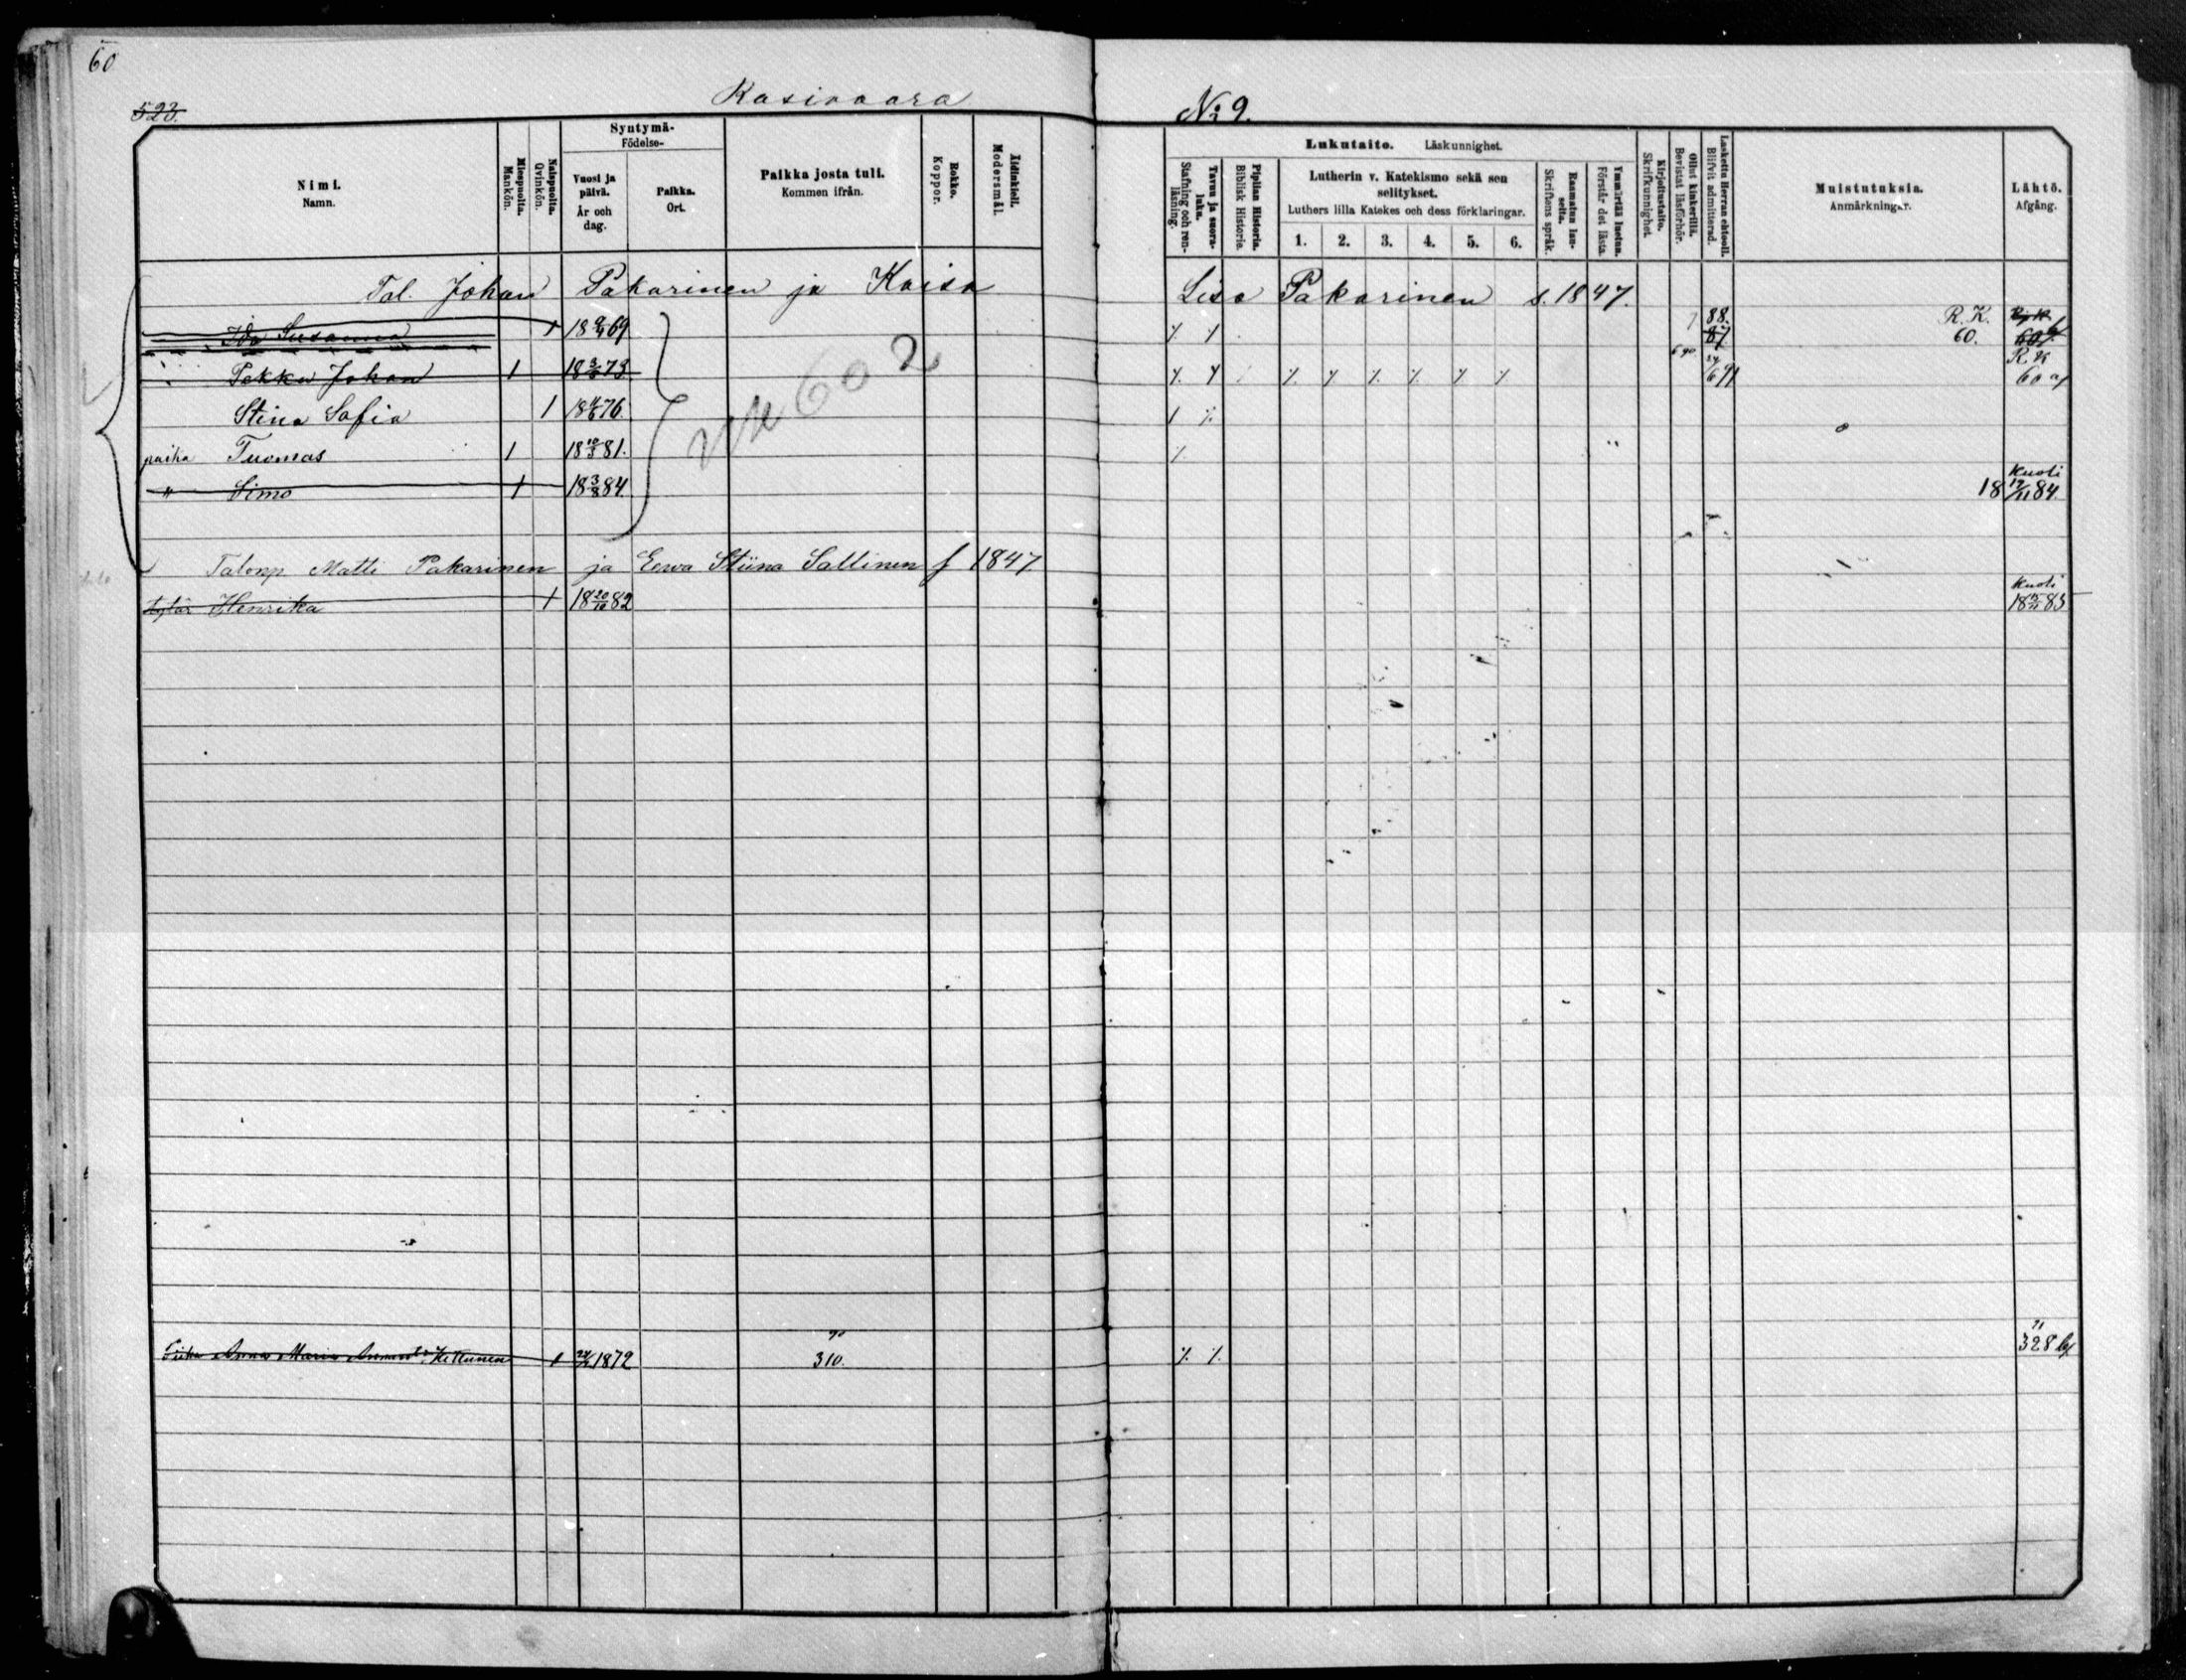 60
523.
Kasivaara
No 9.
Nimi.
Namn.
Miespuolta.
Mankön.
Naispuolta.
Qvinkön.
Syntymä-
Födelse-
Vuosi ja päivä.
År och dag.
Paikka.
Ort.
Paikka josta tuli.
Kommen ifrån.
Rokko.
Koppor.
Äidinkieli.
Modersmål.
Tavuu ja suora-luku.
Stafning och ren-läsning.
Piplian Historia.
Biblisk Historia.
Lukutaito. Läskunnighet.
Lutherin v. Katekismo sekä sen selitykset.
Luthers lilla Katekes och dess förklaringar.
1. 2. 3. 4. 5. 6.
Raamatun lau-seita.
Skriftens språk.
Ymmärtää luetun.
Förstår det lästa.
Kirjoitustaito.
Skrifkunnighet.
Ollut kinkerillä.
Bevistat läsförhör.
Laskettu Herran ehtooll.
Blifvit admitterad.
Muistutuksia.
Anmärkningar.
Lähtö.
Afgång.
Tal. Johan Pakarinen ja Kaisa Lisa Pakarinen s. 1847.
Ida Susanna 1 18 69 88. 87 R. K. 60.
Pekka Johan 1 18 73 R. K. 60 a/
Stina Sofia 1 18 76.
poika Tuomas 1 18 81.
" Simo 1 18 3/8 84 Kuoli 18 84
602
Talonp Matti Pakarinen ja Eewa Stiina Sallinen f 1847
tytär Henrika 1 18 20/10 82 Kuoli 18 83
Piika Anna Maria Kettunen 1 1872 310. 328 b/